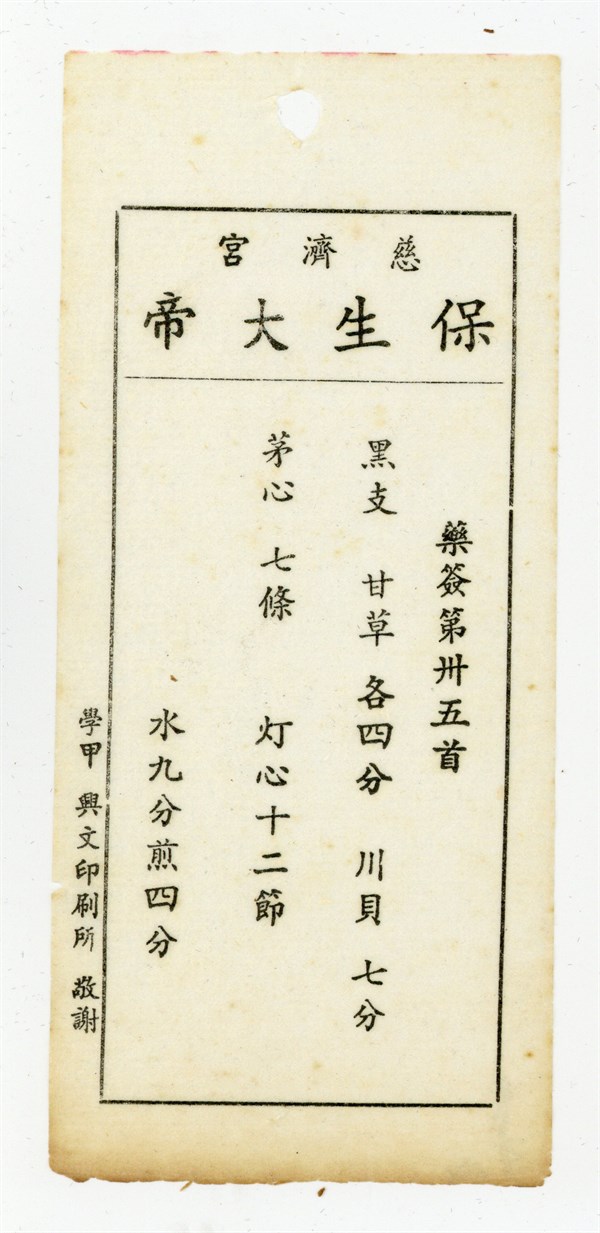 慈濟宮
保生大帝
藥簽第卅五首
黑支 甘草各四分 川貝 七分
茅心 七條 灯心十二節
水九分煎四分
學甲 興文印刷所 敬謝